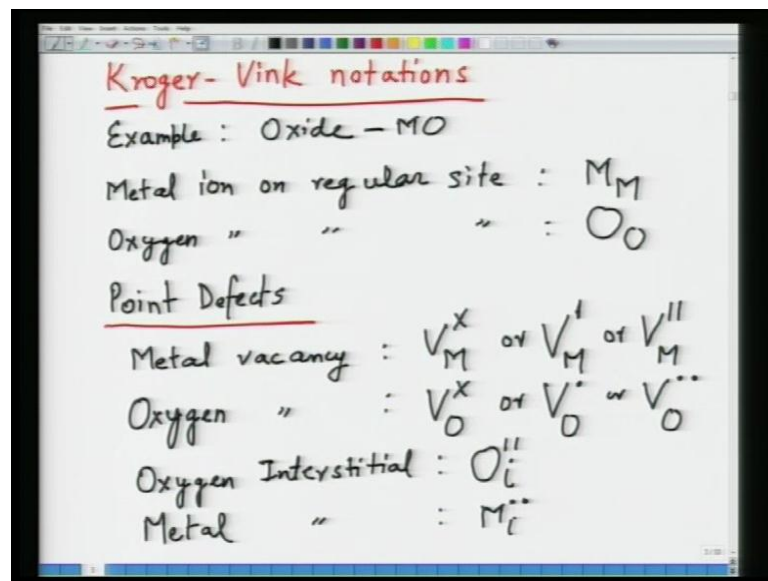 Kroger- Vink notations
Example : Oxide - MO
Metal ion on regular site : M_M
Oxygen " " " : O_O
Point Defects
Metal vacancy : V_M^X or V_M^' or V_M^''
Oxygen " : V_O^X or V_O^• or V_O^••
Oxygen Interstitial : O_i^''
Metal " : M_i^••